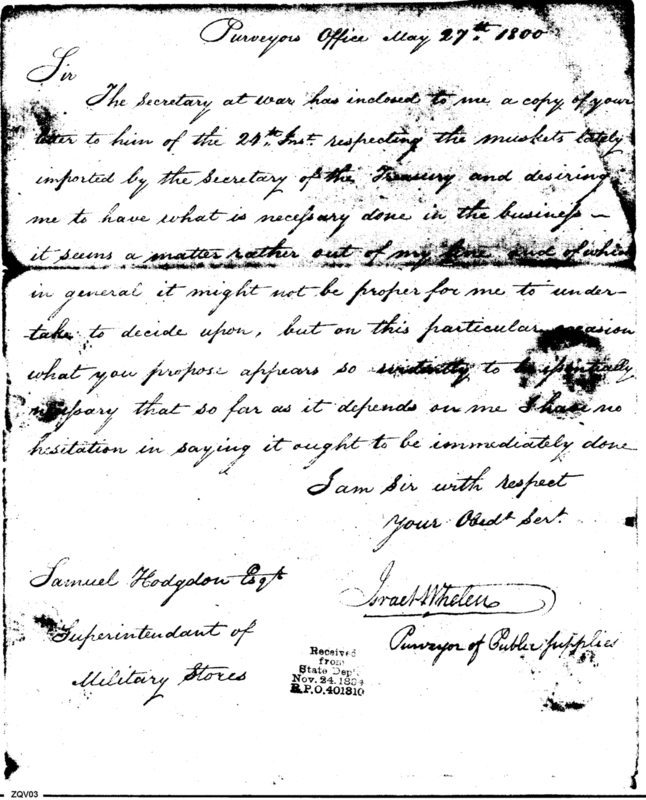 Purveyors Office May 27th. 1800
Sir
The Secretary at war has inclosed to me a copy of your
letter to him of the 24th. Inst. respecting the muskets lately
imported by the Secretary of the Treasury and desiring
me to have what is necessary done in the business –
it seems a matter rather out of my line and of which
in general it might not be proper for me to under-
take to decide upon, but on this particular occasion
what you propose appears so evidently to be essentially
necessary that so far as it depends on me I have no
hesitation in saying it ought to be immediately done
I am Sir with respect
Your Obedt. Sert.
Israel Whelen
Purveyor of Public Supplies
Samuel Hodgdon Esqr
Superintendant of
Military Stores
Received
from
State Dept.
Nov. 24. 1894
R.P.O. 401310
ZQV03